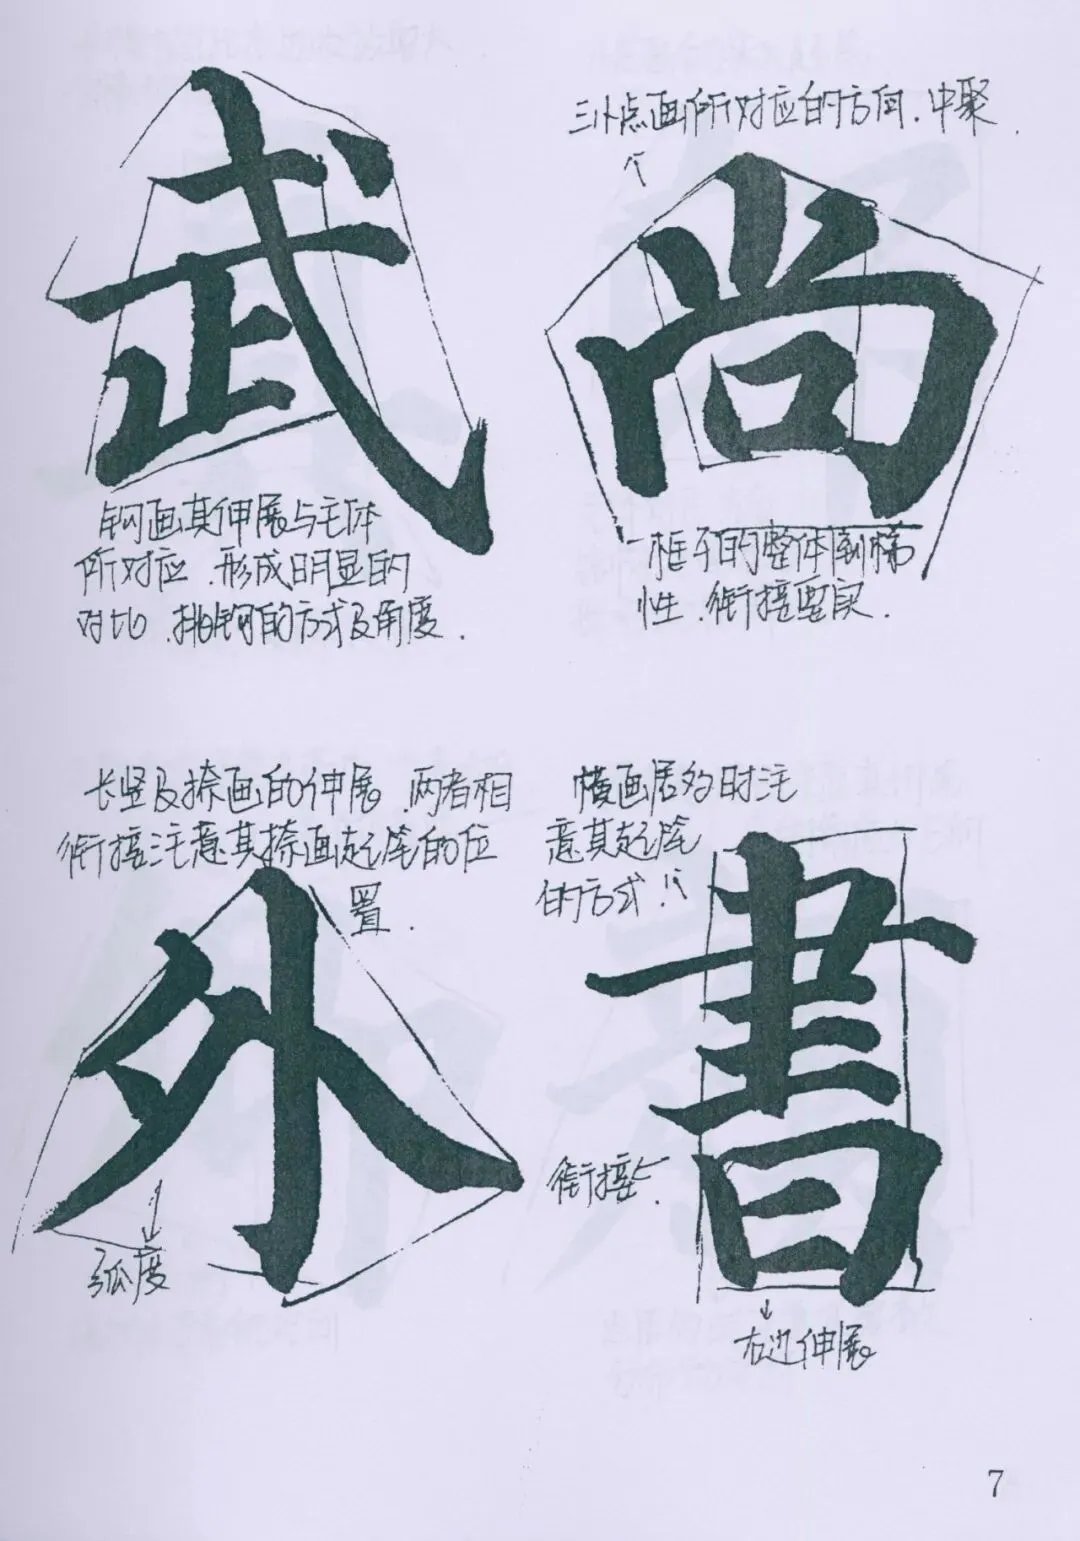 武
钩画其伸展与主体
所对应.形成明显的
对比.挑钩的方式及角度.
三个点画所对应的方向.中聚.
尚
框子的整体倒梯
性.衔接要实.
长竖及捺画的伸展.两者相
衔接注意其捺画起笔的位
置.
外
弧度
横画居多时注
意其起笔
的方式!
書
衔接.
右边伸展
7